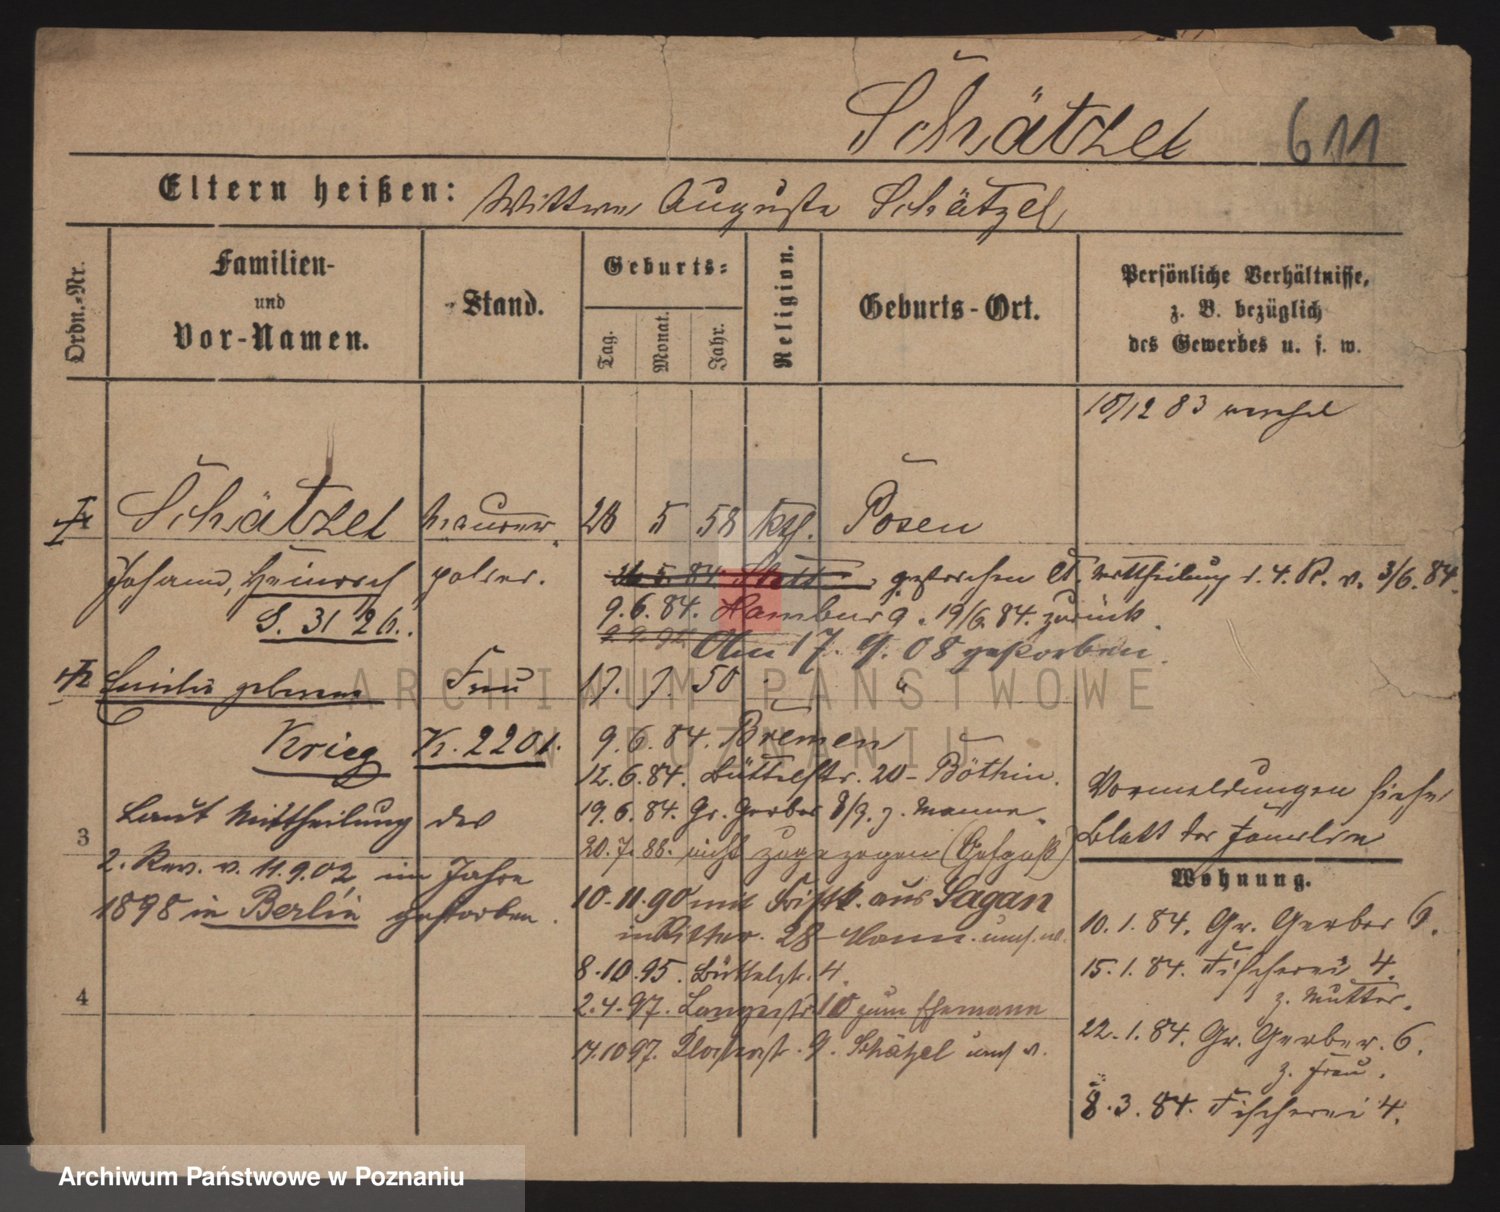 Schätzel 611
Eltern heißen: Wittwe Auguste Schätzel
Ordn.-Nr.
Familien-
und
Vor-Namen.
Stand.
Geburts-
Tag.
Monat.
Jahr.
Religion.
Geburts-Ort.
Persönliche Verhältnisse,
z. B. bezüglich
des Gewerbes u. s. w.
12 83
Schätzel Maurer- 28 5 58 kth. Posen
Johann, Heinrich polier.
gestrichen lt. Mittheilung d. 4. R. v. 3/6. 84.
S. 31 26.
9. 6. 84. Hamburg. 19/6. 84. zurück.
Am 17. 9. 08 gestorben.
geborene Frau 17. 7. 50 "
Krieg K. 2201.
9. 6. 84. Bremen
12. 6. 84. Büttelstr. 20 - Böthin.
19. 6. 84. Gr. Gerber 8/9. z. Manne.
20. 7. 88. nicht zugezogen
10. 11. 90 mit aus Sagan
Ritter. 28
8. 10. 95. Büttelstr. 4.
2. 4. 97. Langestr 10 zum Ehemann
14. 10 97. 9. Schätzel
3
4
Laut Mittheilung des
2. Rev. v. 11.9.02 im Jahre
1898 in Berlin gestorben.
Vormeldungen siehe
Blatt der Familie
Wohnung.
10. 1. 84. Gr. Gerber 6.
15. 1. 84. Fischerei 4.
z. Mutter.
22. 1. 84. Gr. Gerber. 6.
z. Frau.
8. 3. 84. Fischerei 4.
ARCHIWUM PAŃSTWOWE
W POZNANIU
Archiwum Państwowe w Poznaniu